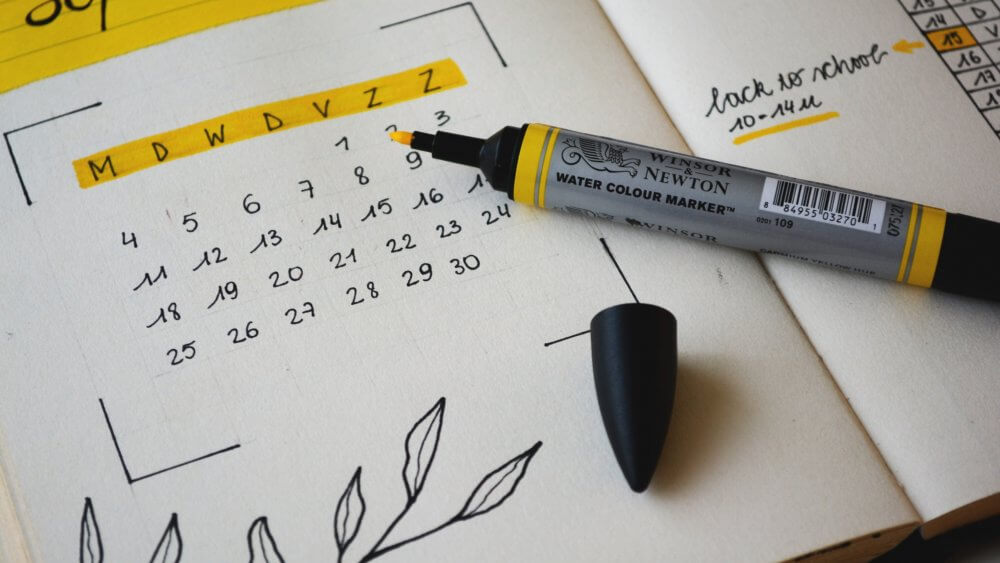 M D W D V Z Z
1 2 3
4 5 6 7 8 9
11 12 13 14 15 16
18 19 20 21 22 23 24
25 26 27 28 29 30
WINSOR
&
NEWTON
WATER COLOUR MARKER™
WINSOR
8 84955 03270 1
0201 109
CADMIUM YELLOW HUE
back to school
10-14u
14 D
15 V
16
17